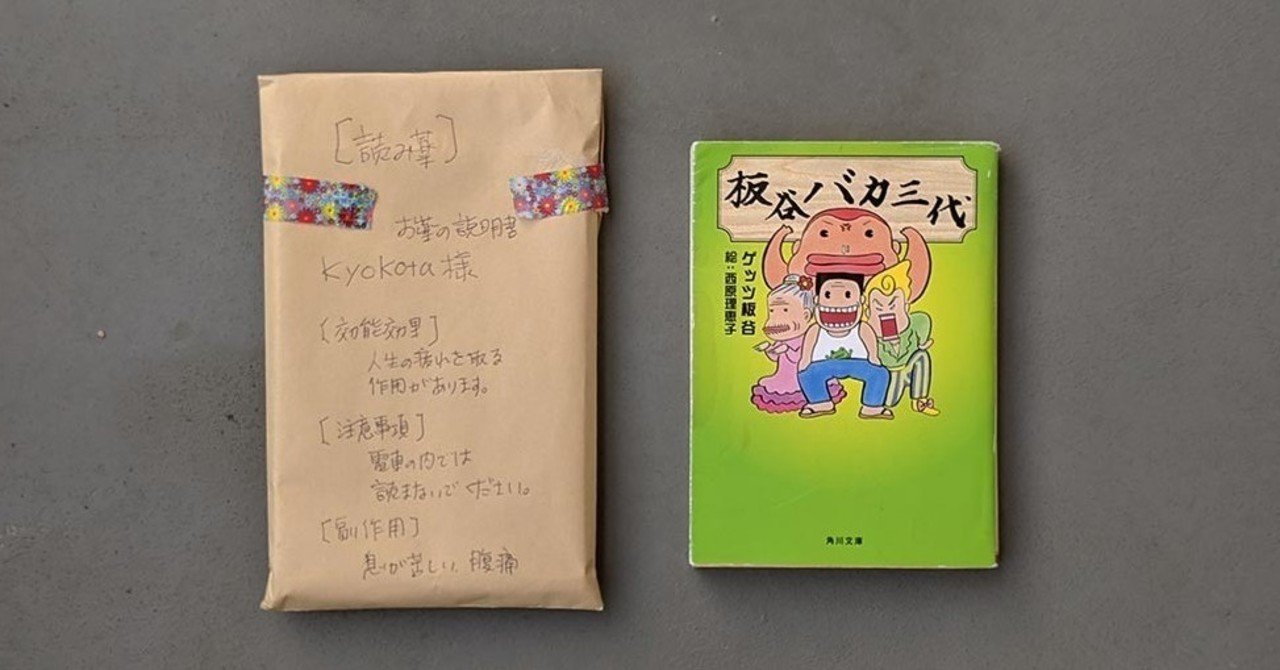 [読み薬]
お薬の説明書
Kyokota様
[効能効果]
人生の疲れを取る
作用があります。
[注意事項]
電車の内では
読まないでください。
[副作用]
息が苦しい、腹痛
板谷バカ三代
ゲッツ板谷
絵:西原理恵子
角川文庫